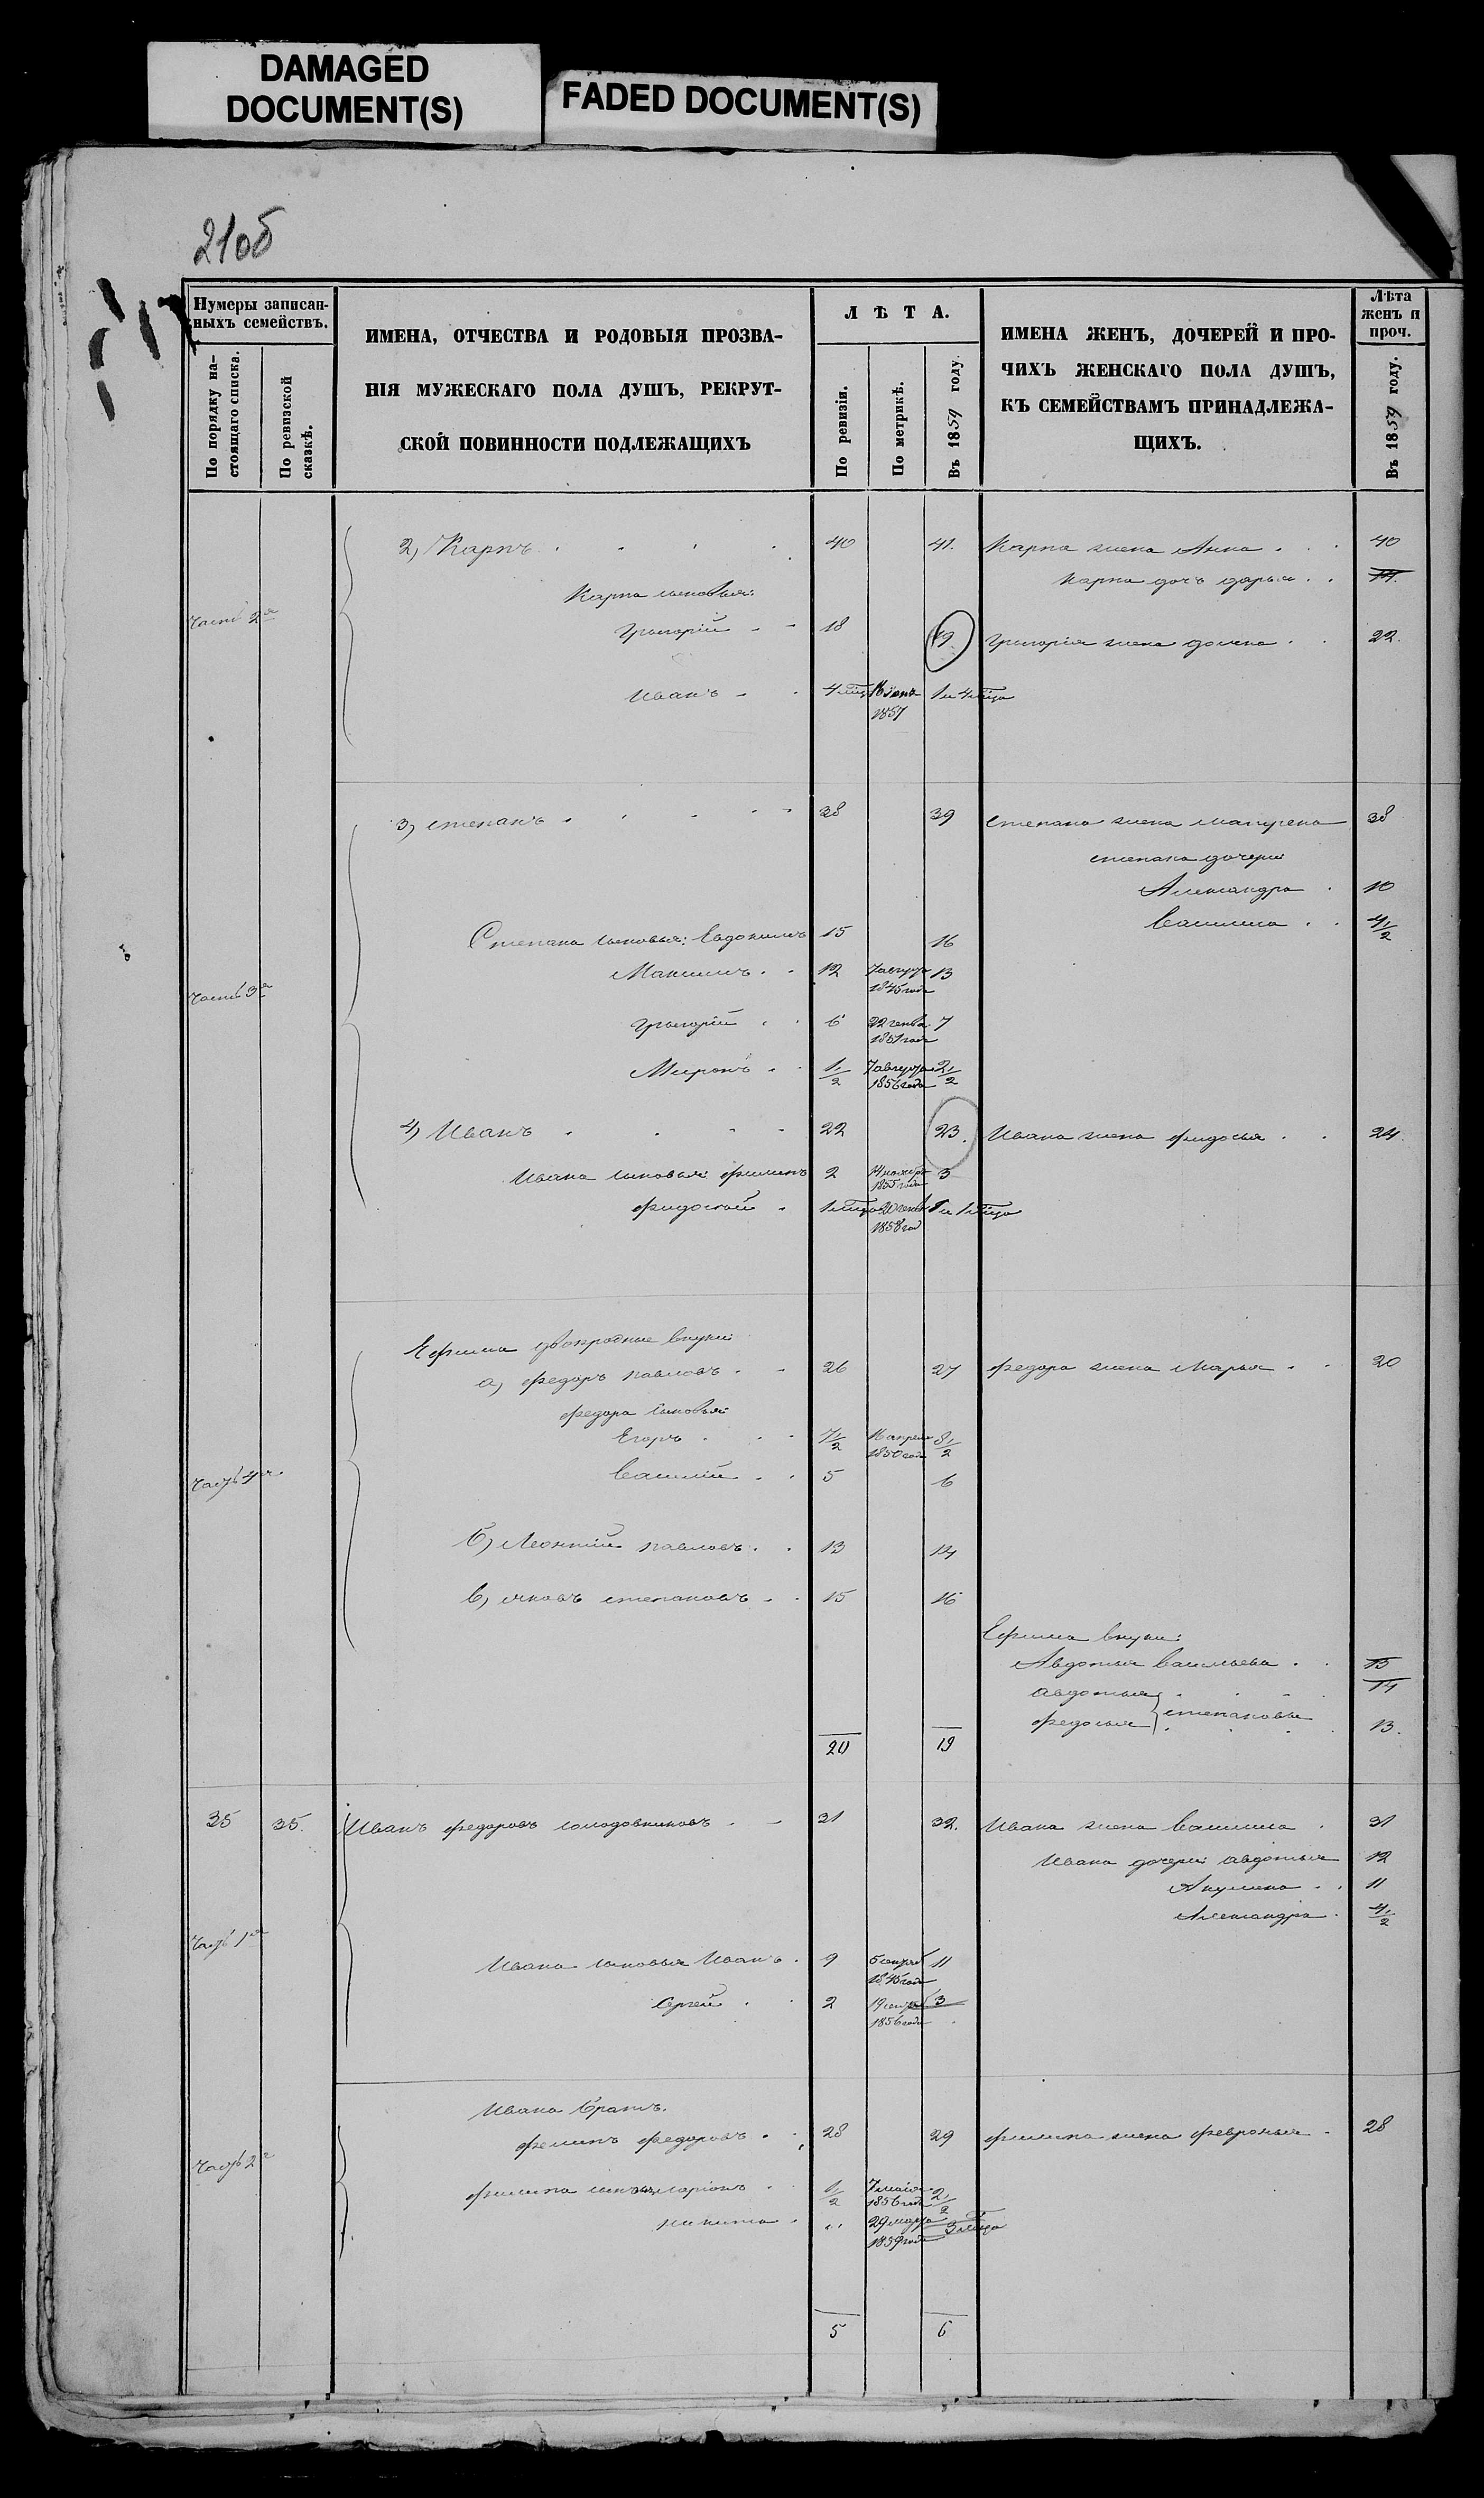 DAMAGED
DOCUMENT(S)
FADED DOCUMENT(S)
21об
Нумеры записан-
ныхъ семействъ.
По порядку на-
стоящаго списка.
По ревизской
сказкѣ.
ИМЕНА, ОТЧЕСТВА И РОДОВЫЯ ПРОЗВА-
НІЯ МУЖЕСКАГО ПОЛА ДУШЪ, РЕКРУТ-
СКОЙ ПОВИННОСТИ ПОДЛЕЖАЩИХЪ
ЛѢТА.
По ревизіи.
По метрикѣ.
Въ 1859 году.
ИМЕНА ЖЕНЪ, ДОЧЕРЕЙ И ПРО-
ЧИХЪ ЖЕНСКАГО ПОЛА ДУШЪ,
КЪ СЕМЕЙСТВАМЪ ПРИНАДЛЕЖА-
ЩИХЪ.
Лѣта
женъ и
проч.
Въ 1859 году.
2) Карпъ 40 41. Карпа жена Анна 40
Карпа дочь дарья 14.
Карпа сыновья:
Часть 2я
Григорій 18 19. Григорія жена 22.
Иванъ 4 мѣц 1857 1 и 4 мѣца
3) степанъ 38 39 степана жена 38
степана дочери
Александра 10
Василиса 4 1/2
Степана сыновья: Евдокимъ 15 16
Максимъ 12 7 августа 1845 года 13
Часть 3я
Григорій 6 22 генва. 1851 года 7
Миронъ 1/2 7 августа 1856 года 2 1/2
4) Иванъ 22 23. Ивана жена федосья 24.
Ивана сыновья: филипъ 2 14 ноября 1855 года 3
федосей 1 мѣца 20 генва 1858 год 1 и 1 мѣца
Ефима двоюродные внуки
а) федоръ павловъ 26 27 федора жена Марья 20
федора сыновья:
Егоръ 7 1/2 16 апреля 1850 года 8 1/2
Василій 5 6
Часть 4я
б) Леонтій павловъ 13 14
в) яковъ степановъ 15 16
Ефима внуки:
Авдотья васильева 15
авдотья 14
федосья } степановы 13.
20 19
35 35. Иванъ федоровъ солодовниковъ 31 32. Ивана жена Василиса 31
Ивана дочери авдотья 12
Акулина 11
Александра 4 1/2
Часть 1я
Ивана сыновья Иванъ 9 11
Сергей 2 1856 года 3
Ивана братъ.
филипъ федоровъ 28 29 филипа жена февронья 28
Часть 2я
филипа сыновья 1/2 7 маія 1856 года 2 1/2
никита " 29 марта 1859 года 3 мѣца
5 6